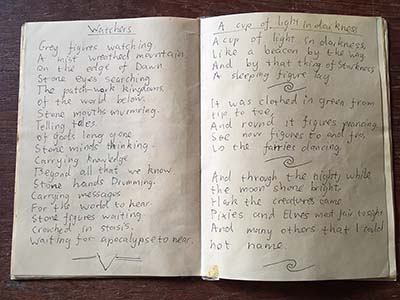 Watchers
Grey figures watching
A mist wreathed mountain
On the edge of Dawn
Stone eyes searching
The patch-work kingdoms
of the world below.
Stone mouths murmring
Telling tales
of gods long gone
Stone minds thinking.
Carrying knowledge
Beyond all that we know
Stone hands Drumming.
Carrying messages
For the world to hear
Stone figures waiting
Crowched in stasis.
Waiting for apocalypse to near.
A cup of light in darkness
A cup of light in darkness,
Like a beacon by the way
And by that thing of starkness
A sleeping figure lay.
It was clothed in green from
tip to toe,
And round it figures prancing
See now figures to and fro,
Lo the fairies dancing.
And through the night, while
the moon shone bright,
Hark the creatures came
Pixies and Elves most fair to sight
And many others that I could
not name.